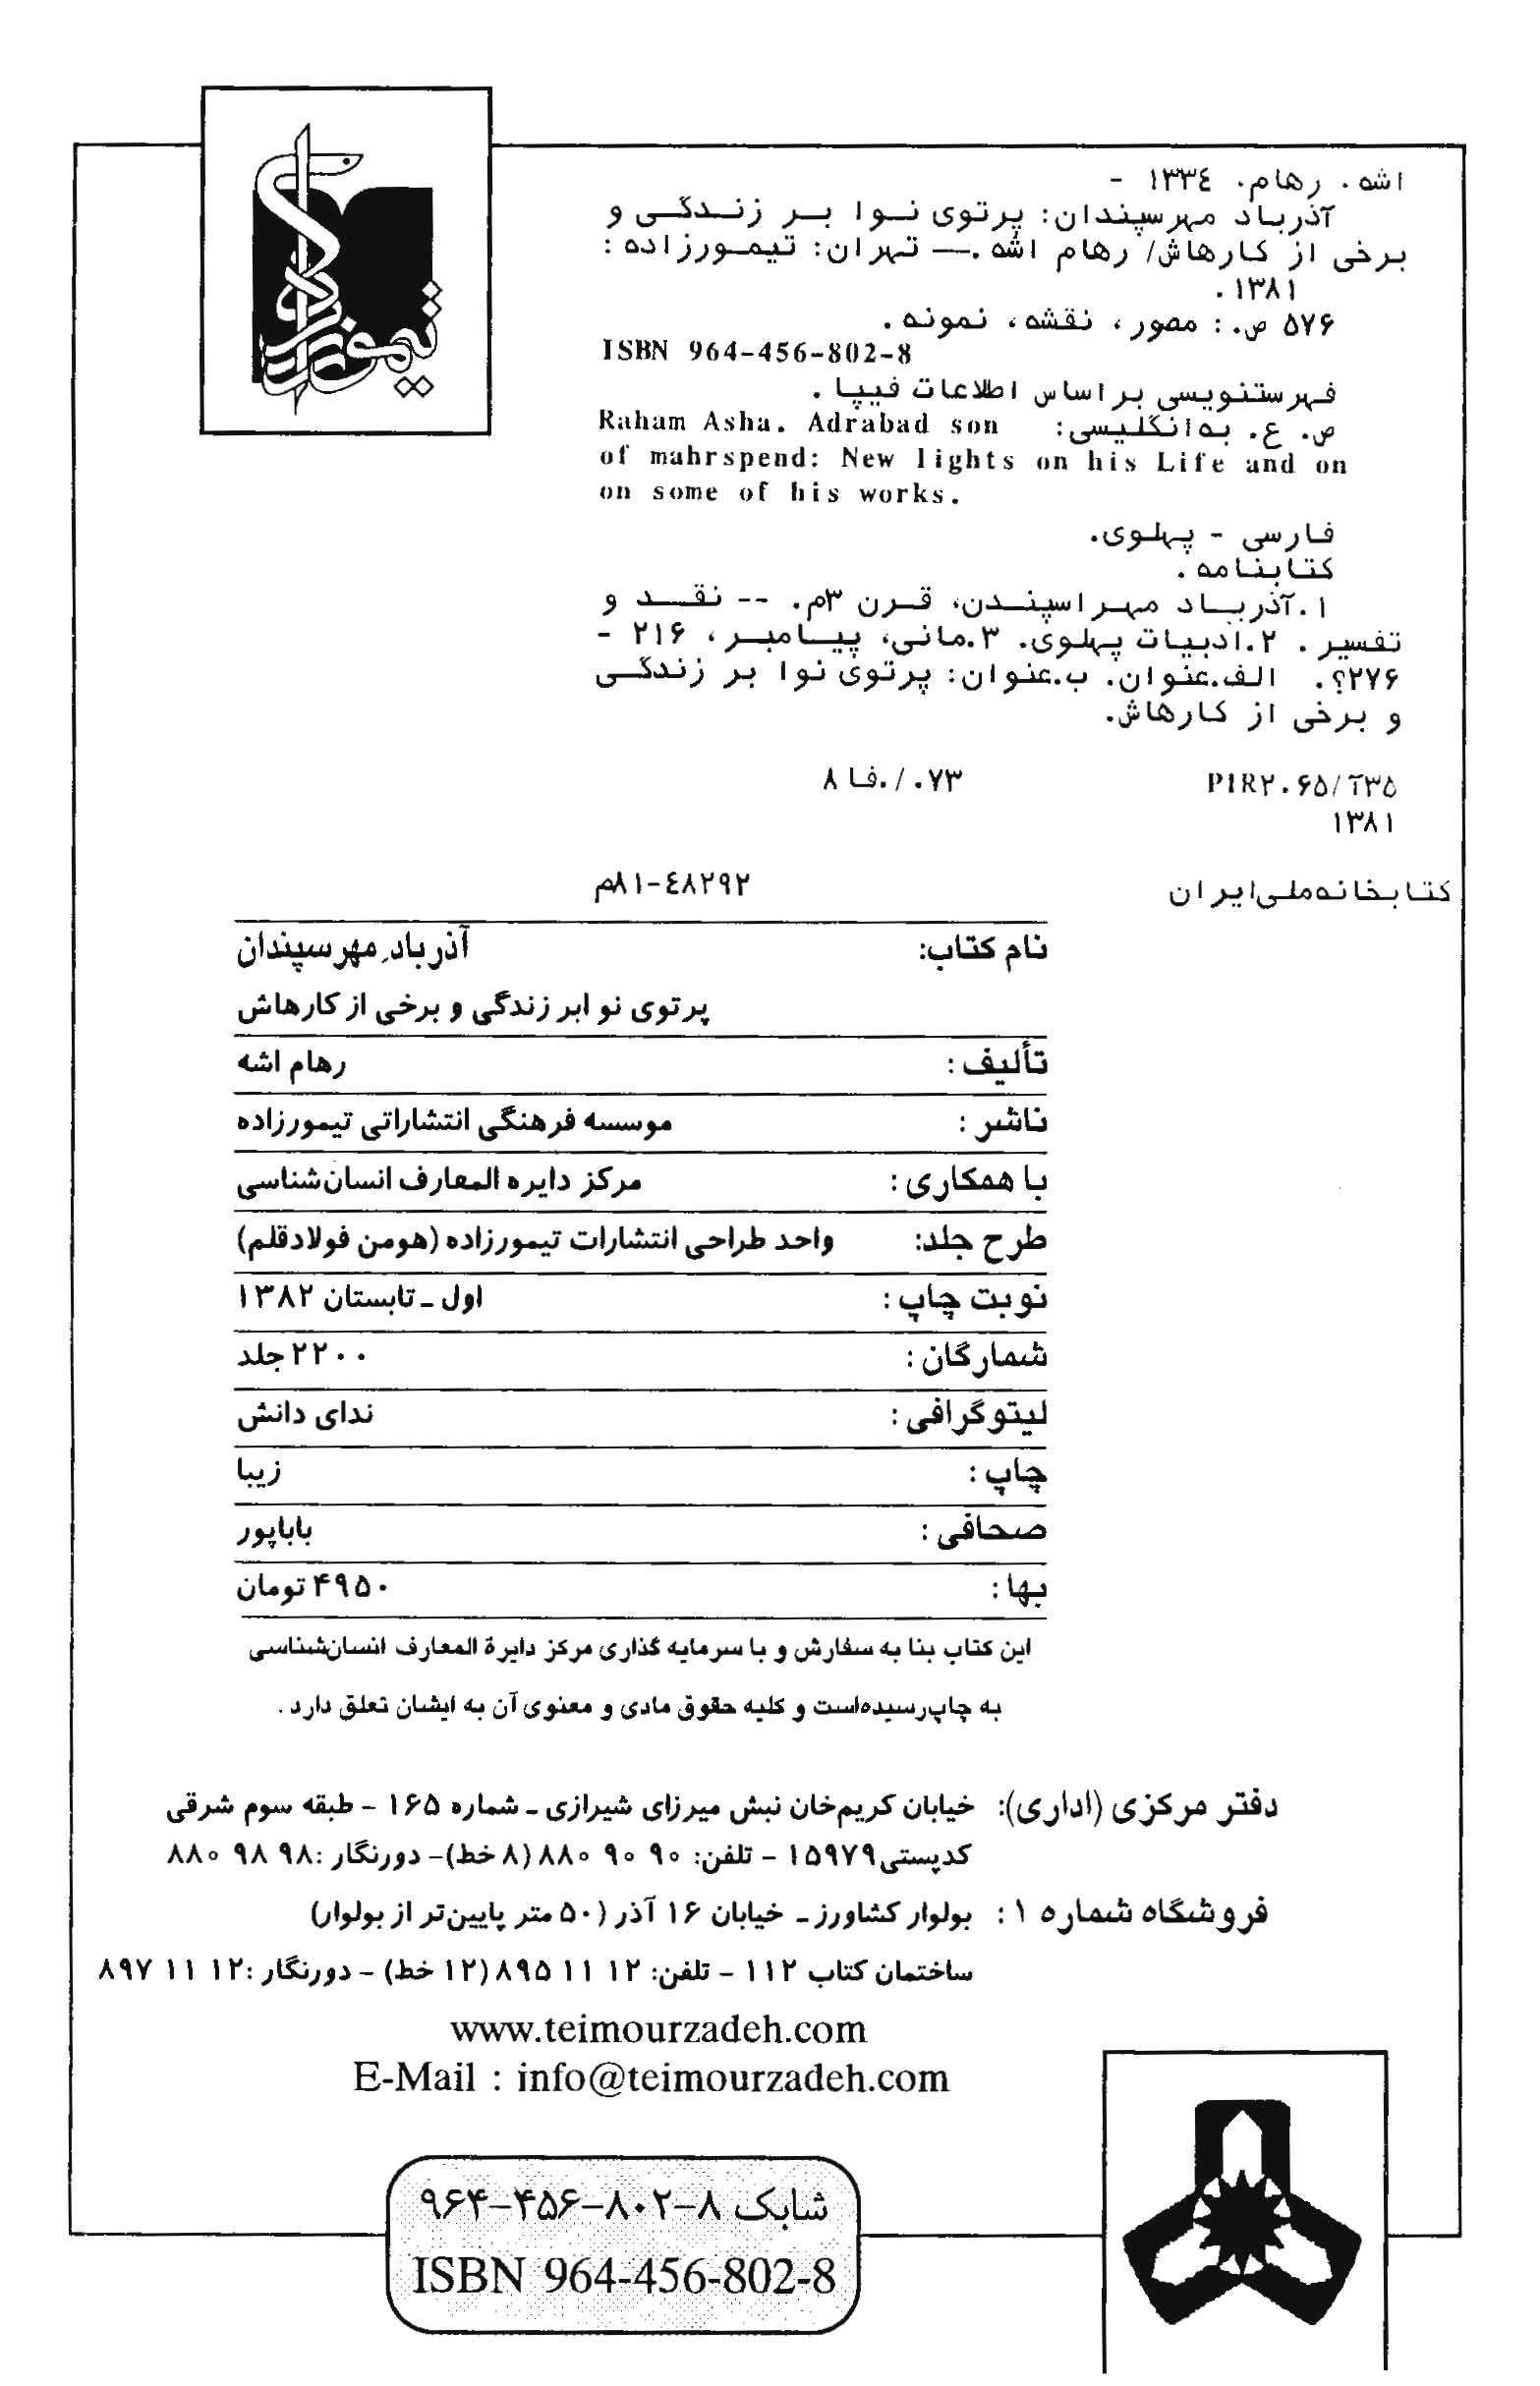 تیمورزاده
اشه، رهام، ۱۳۳٤ -
آذرباد مهرسپندان: پرتوی نوا بر زندگی و
برخی از کارهاش/ رهام اشه.— تهران: تیمورزاده:
۱۳۸۱.
۵۷۶ ص.: مصور، نقشه، نمونه.
ISBN 964-456-802-8
فهرستنویسی براساس اطلاعات فیپا.
ص. ع. به‌انگلیسی: Raham Asha. Adrabad son
of mahrspend: New lights on his Life and on
on some of his works.
فارسی - پهلوی.
کتابنامه.
۱.آذرباد مهراسپندن، قرن ۳م. -- نقد و
تفسیر. ۲.ادبیات پهلوی. ۳.مانی، پیامبر، ۲۱۶ -
۲۷۶؟. الف.عنوان. ب.عنوان: پرتوی نوا بر زندگی
و برخی از کارهاش.
PIR۲۰۶۵/آ۳۵ ۸فا/۰۷۳.
۱۳۸۱
کتابخانه‌ملی‌ایران ۸۱-٤۸۲۹۲م
نام کتاب: آذرباد ِمهرسپندان
پرتوی نو ابر زندگی و برخی از کارهاش
تألیف : رهام اشه
ناشر : موسسه فرهنگی انتشاراتی تیمورزاده
با همکاری : مرکز دایره المعارف انسان‌شناسی
طرح جلد: واحد طراحی انتشارات تیمورزاده (هومن فولادقلم)
نوبت چاپ : اول ـ تابستان ۱۳۸۲
شمارگان : ۲۲۰۰ جلد
لیتوگرافی : ندای دانش
چاپ : زیبا
صحافی : باباپور
بها : ۴۹۵۰ تومان
این کتاب بنا به سفارش و با سرمایه گذاری مرکز دایرة المعارف انسان‌شناسی
به چاپ‌رسیده‌است و کلیه حقوق مادی و معنوی آن به ایشان تعلق دارد .
دفتر مرکزی (اداری): خیابان کریم‌خان نبش میرزای شیرازی ـ شماره ۱۶۵ – طبقه سوم شرقی
کدپستی۱۵۹۷۹ – تلفن: ۹۰ ۹۰ ۸۸۰ (۸ خط)– دورنگار :۹۸ ۹۸ ۸۸۰
فروشگاه شماره ۱ : بولوار کشاورز ـ خیابان ۱۶ آذر (۵۰ متر پایین‌تر از بولوار)
ساختمان کتاب ۱۱۲ – تلفن: ۱۲ ۱۱ ۸۹۵ (۱۲ خط) – دورنگار :۱۲ ۱۱ ۸۹۷
www.teimourzadeh.com
E-Mail : info@teimourzadeh.com
شابک ۸–۸۰۲–۴۵۶–۹۶۴
ISBN 964-456-802-8